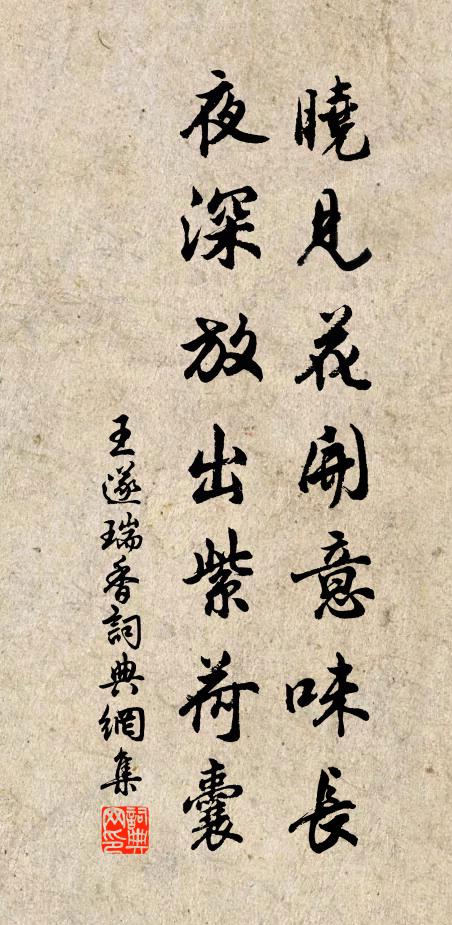 曉見花開意味長
夜深放出紫荷囊
王遂瑞香詞典網集
詞典網印